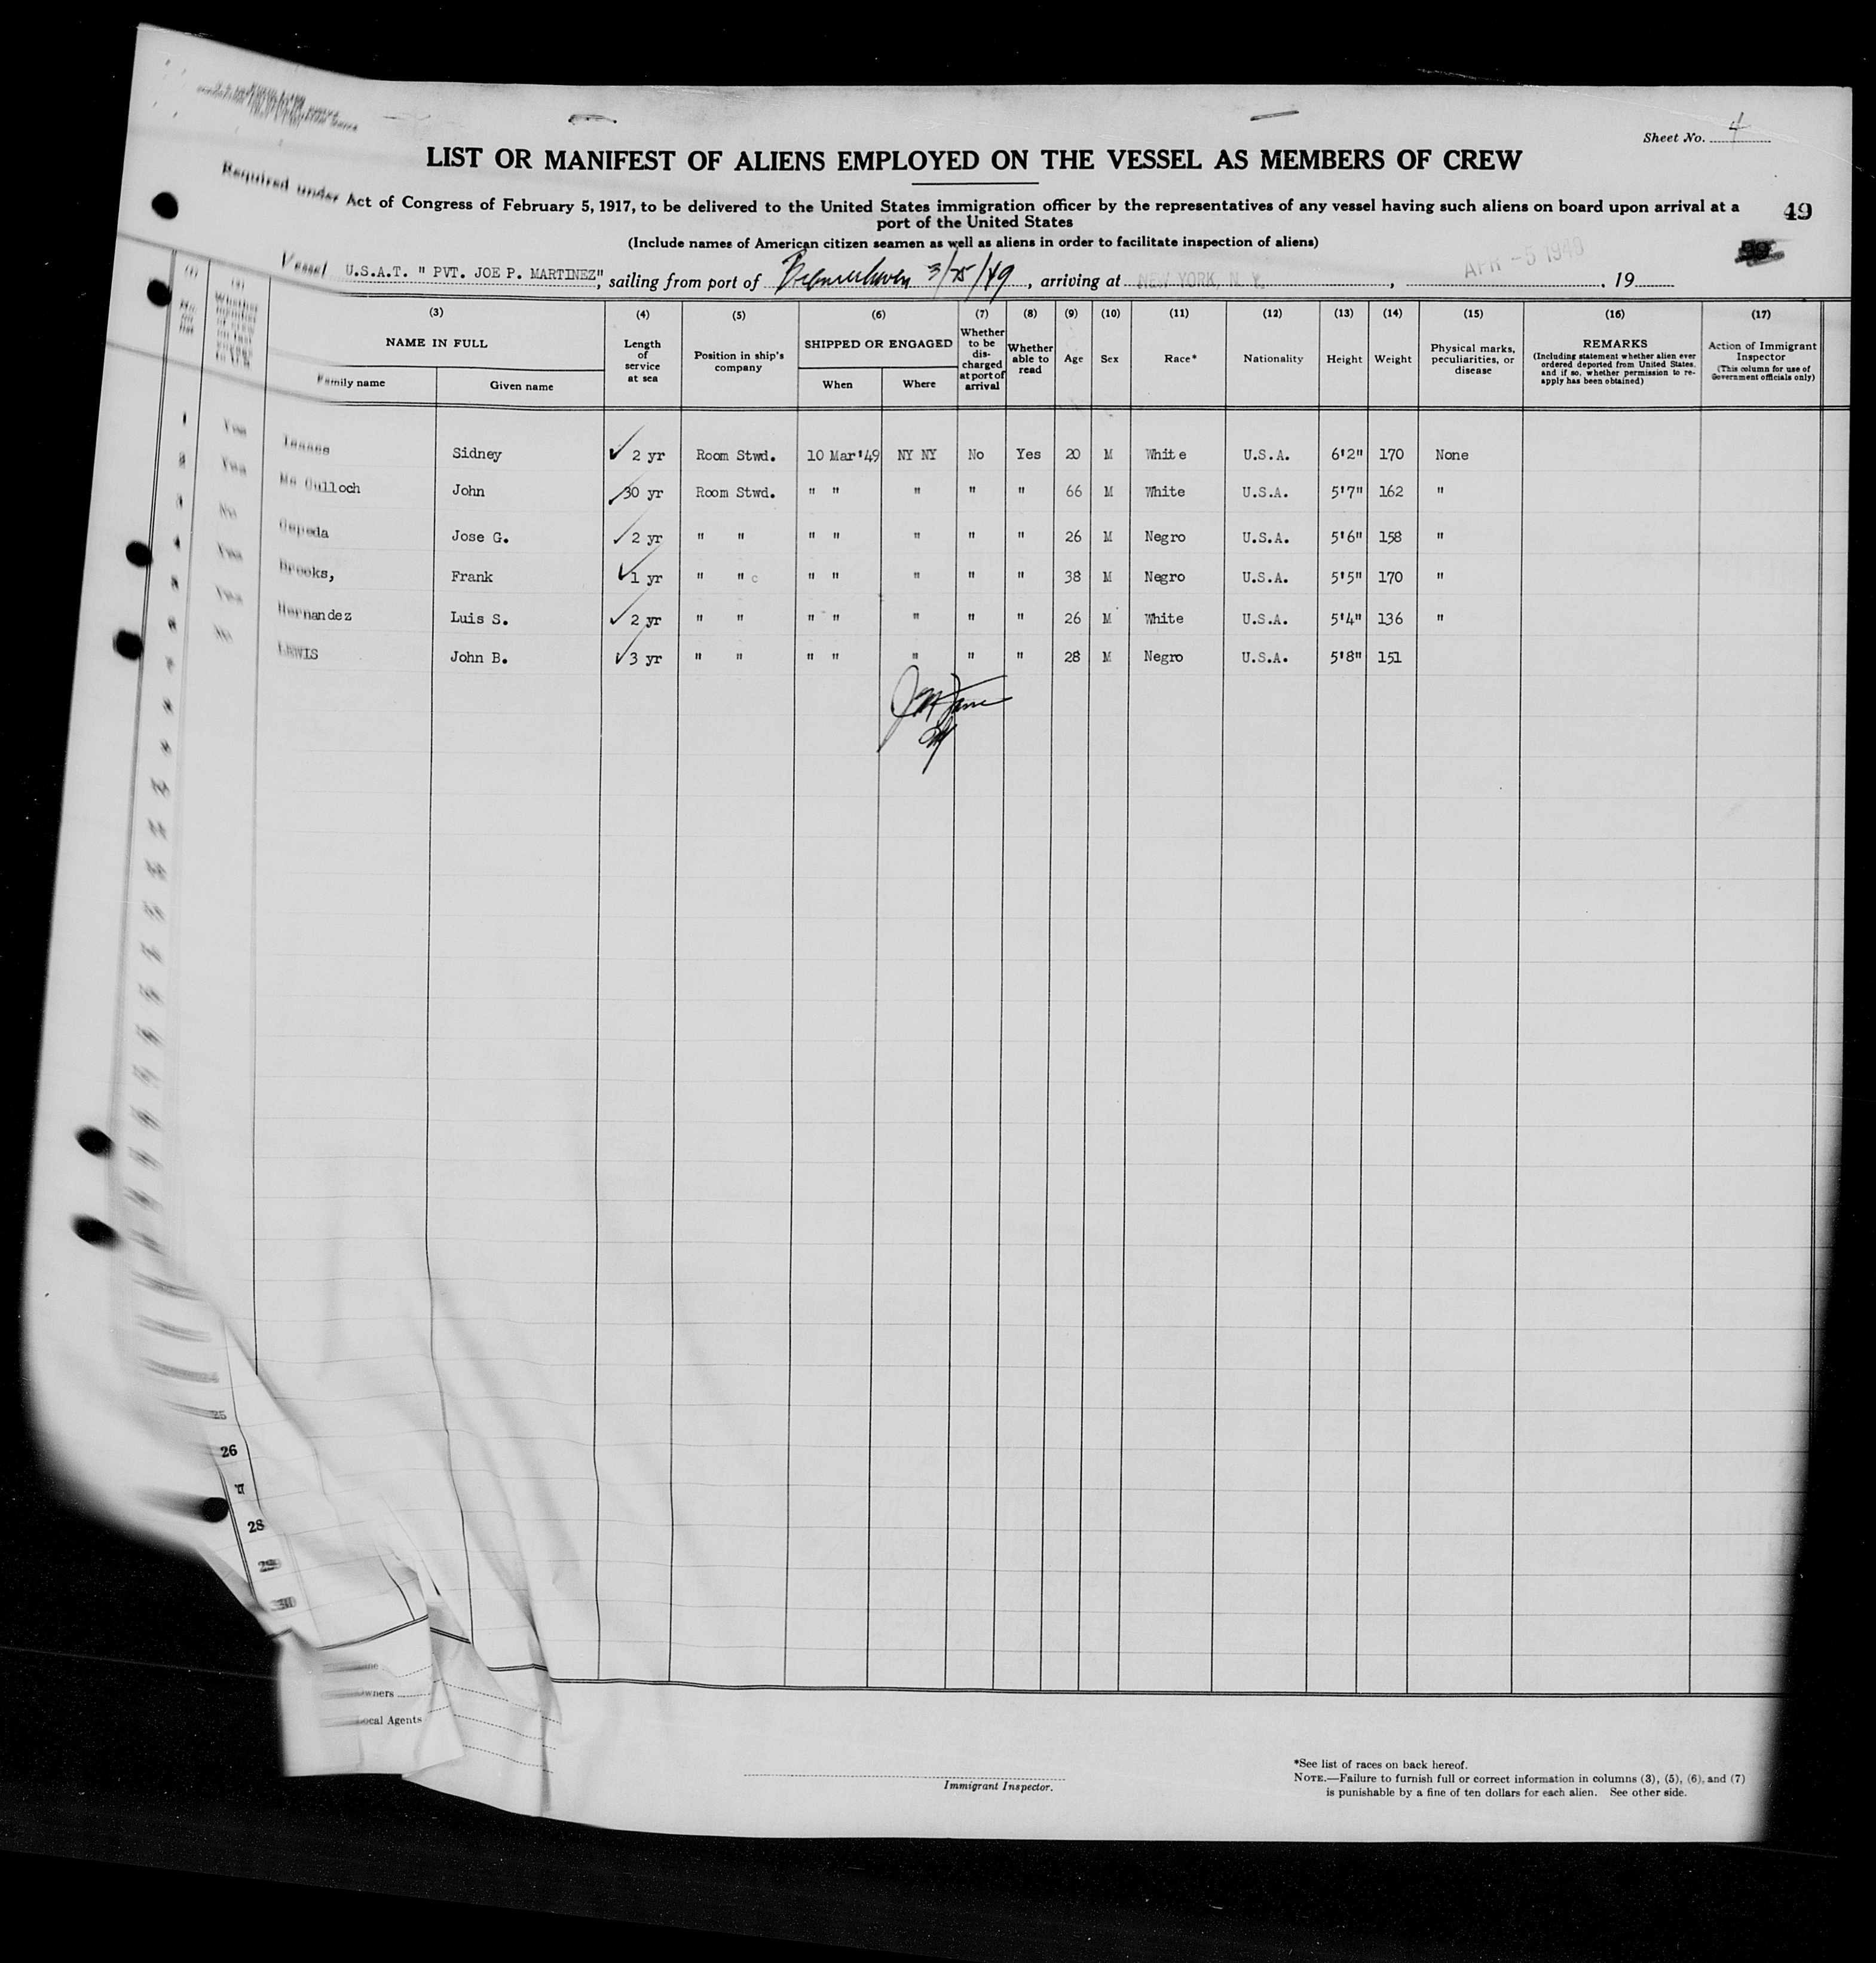 Sheet No. 4
LIST OR MANIFEST OF ALIENS EMPLOYED ON THE VESSEL AS MEMBERS OF CREW
Required under Act of Congress of February 5, 1917, to be delivered to the United States immigration officer by the representatives of any vessel having such aliens on board upon arrival at a
port of the United States
49
(Include names of American citizen seamen as well as aliens in order to facilitate inspection of aliens)
Vessel U.S.A.T. " PVT. JOE P. MARTINEZ", sailing from port of Bremerhaven 3/25/49, arriving at NEW YORK, N. Y., APR -5 1949, 19
(3) (4) (5) (6) (7) (8) (9) (10) (11) (12) (13) (14) (15) (16) (17)
NAME IN FULL
Family name Given name
Length of service at sea
Position in ship's company
SHIPPED OR ENGAGED
When Where
Whether to be discharged at port of arrival
Whether able to read
Age Sex Race* Nationality Height Weight
Physical marks, peculiarities, or disease
REMARKS
(Including statement whether alien ever ordered deported from United States, and if so, whether permission to reapply has been obtained)
Action of Immigrant Inspector
(This column for use of Government officials only)
Yes Sidney 2 yr Room Stwd. 10 Mar'49 NY NY No Yes 20 M White U.S.A. 6'2" 170 None
Yes Mc Culloch John 30 yr Room Stwd. " " " " " 66 M White U.S.A. 5'7" 162 "
No Cepeda Jose G. 2 yr " " " " " " " 26 M Negro U.S.A. 5'6" 158 "
Yes Brooks, Frank 1 yr " " c " " " " " 38 M Negro U.S.A. 5'5" 170 "
Yes Hernandez Luis S. 2 yr " " " " " " " 26 M White U.S.A. 5'4" 136 "
No LEWIS John B. 3 yr " " " " " " " 28 M Negro U.S.A. 5'8" 151
25
26
28
29
30
Owners
Local Agents
Immigrant Inspector.
*See list of races on back hereof.
NOTE.—Failure to furnish full or correct information in columns (3), (5), (6), and (7)
is punishable by a fine of ten dollars for each alien. See other side.